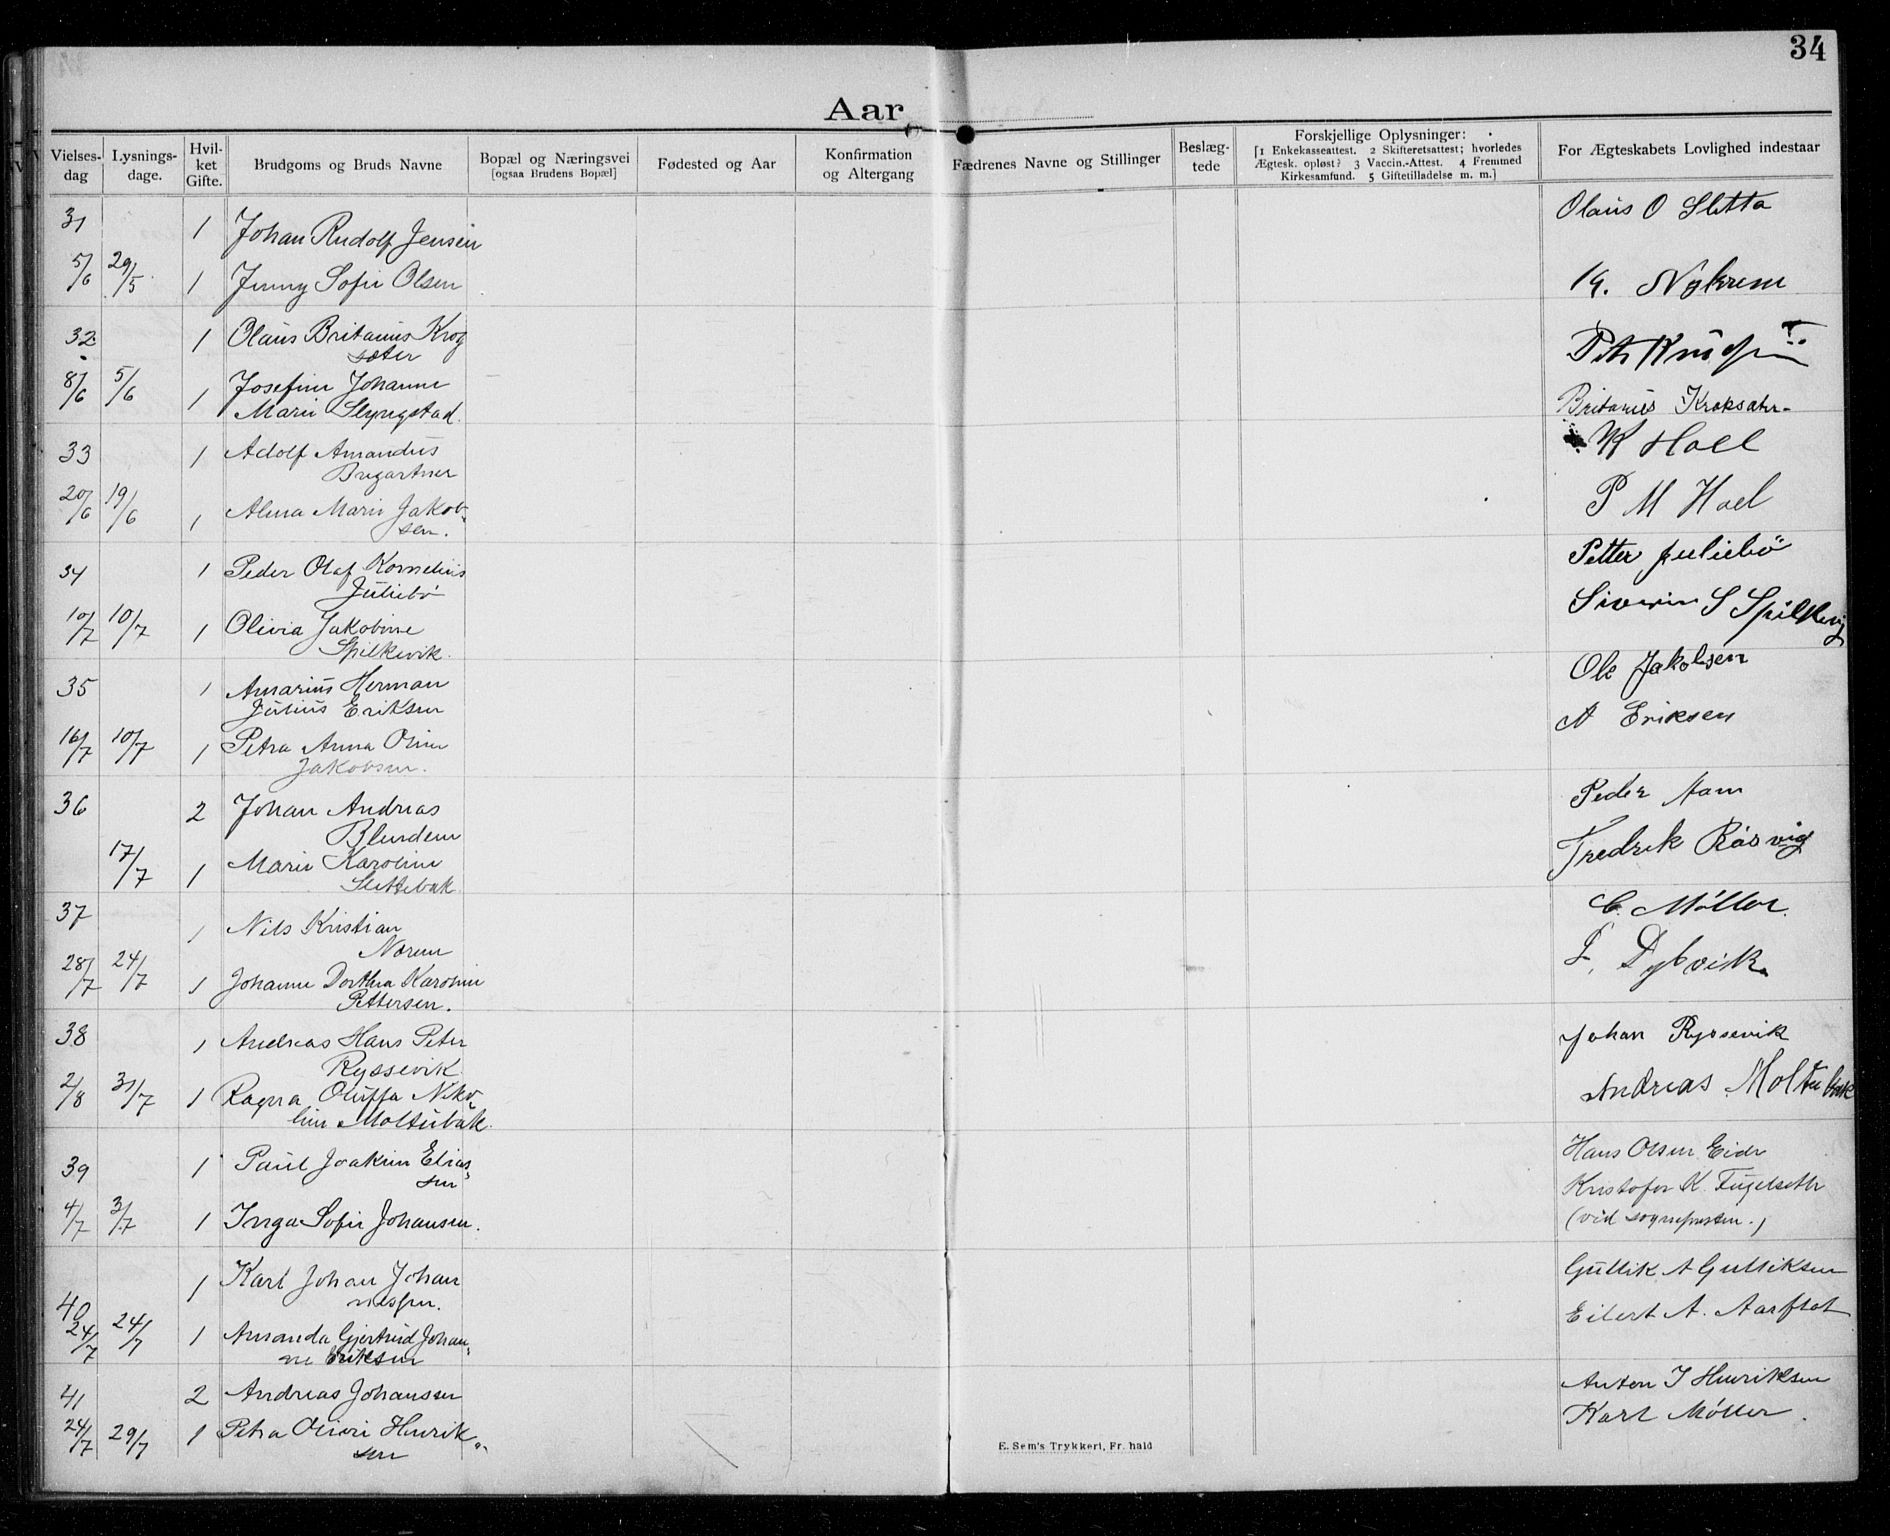 34
Aar
Vielses-dag
Lysnings-dage.
Hvil-ket Gifte.
Brudgoms og Bruds Navne
Bopæl og Næringsvei [ogsaa Brudens Bopæl]
Fødested og Aar
Konfirmation og Altergang
Fædrenes Navne og Stillinger
Beslæg-tede
Forskjellige Oplysninger:
[1 Enkekasseattest. 2 Skifteretsattest; hvorledes
Ægtesk. opløst? 3 Vaccin.-Attest. 4 Fremmed
Kirkesamfund. 5 Giftetilladelse m. m.]
For Ægteskabets Lovlighed indestaar
31 1 Johan Rudolf Jensen Olaus O Sletta
5/6 29/5 1 Jenny Sofie Olsen Nykrem
32 1 Olaus Britanius Krog
sæter
8/6 5/6 1 Josefine Johanne
Marie Slyngstad. Britanius Kroksæter
33 1 Adolf Amandus K Hoel
Bregartner
20/6 19/6 1 Alma Marie Jakob- P M Hoel
sen.
34 1 Peder Olaf Kornelius Petter Juliebö
Juliebö
10/7 10/7 1 Olivia Jakobine Siverin S Spilkevig
Spilkevik.
35 1 Amarius Herman Ole Jakobsen
Julius Eriksen A Eriksen
16/7 10/7 1 Petra Anna Oline
Jakobsen.
36 2 Johan Andreas Peder Aam
Blendem
17/7 1 Marie Karoline Fredrik Räsvig
Slettebak
37 1 Nils Kristian C. Möller.
Norem
28/7 24/7 1 Johanne Dorthea Karoline Dybvik.
Pettersen.
38 1 Andreas Hans Peter Johan Ryssevik
Ryssevik
2/8 31/7 1 Ragna Oluffa Niko- Andreas Moltubak
line Moltubak.
39 1 Paul Joakim Elias- Hans Olsen Eide
sen Kristofer K. Fugelseth
4/7 3/7 1 Inga Sofie Johansen. (vid sognepresten.)
40 1 Karl Johan Johan Gullik A Gulliksen
nessen.
24/7 24/7 1 Amanda Gjertrud Johan- Eilert A. Aarflot
ne Eriksen
41 2 Andreas Johanssen Anton J Henriksen
24/7 29/7 1 Petra Olivie Henrik- Karl Möller.
sen
E. Sem's Trykkeri, Fr.hald